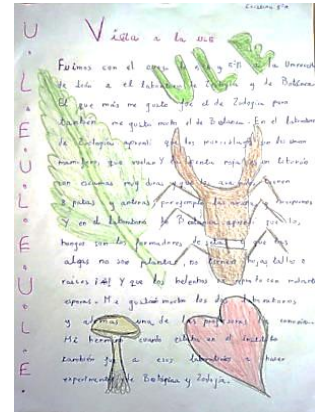 Cristina 5ºA
U.L.E.U.L.E.U.L.E.
Visita a la ULE
ULE
Fuimos con el 5ºB a la Universidad
de León a el laboratorio de Zoología y de Botánica.
El que más me gustó fue el de Zoología pero
también me gustó mucho el de Botánica. En el laboratorio
de Zoología aprendí que los murciélagos son los únicos
mamíferos, que vuelan y
son escamas muy duras y que los tienen
6 patas y antenas, por ejemplo las arañas escorpiones
Y en el laboratorio de Botánica aprendí que los
hongos son los formadores de setas, que las
algas no son plantas, no tienen hojas, tallo o
raíces Y que los helechos se con mediante
esporas. Me gustaron mucho los dos laboratorios
y además una de las profesoras la conocía.
Mi hermano cuando estaba en el instituto
también fue a esos laboratorios a hacer
experimentos de Botánica y Zoología.